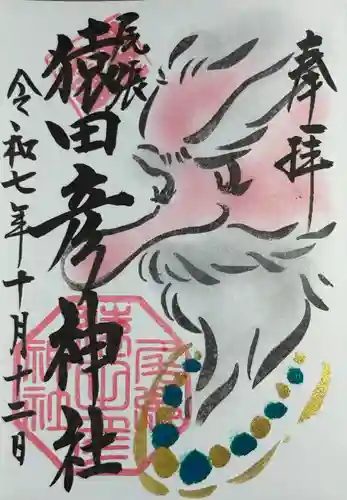 奉拝
尾張
猿田彦神社
令和七年十月十二日